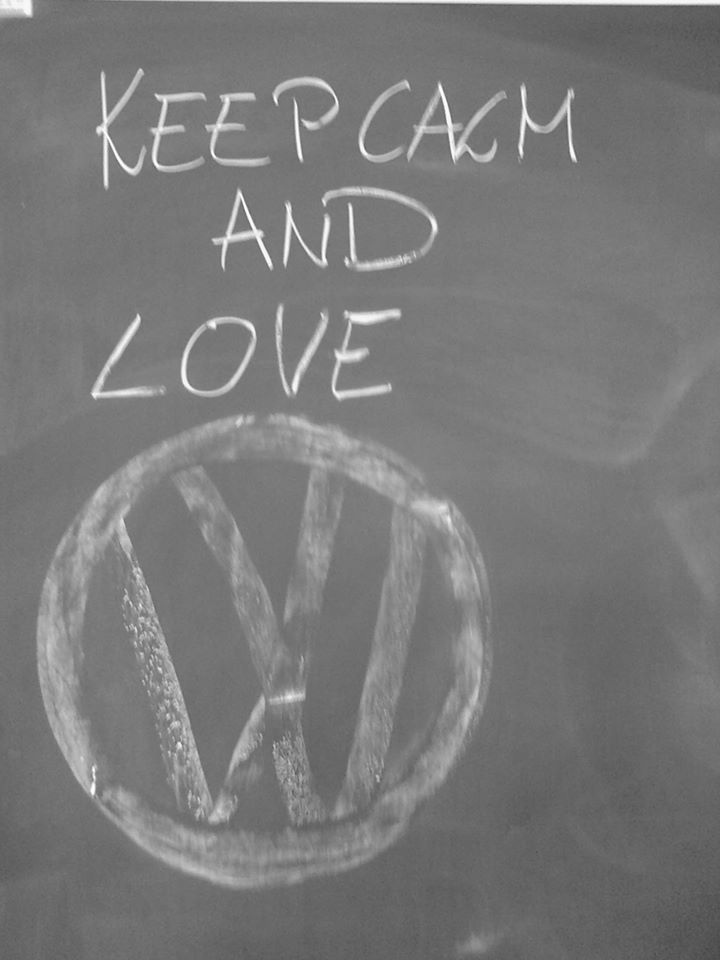 KEEP CALM
AND
LOVE
VW